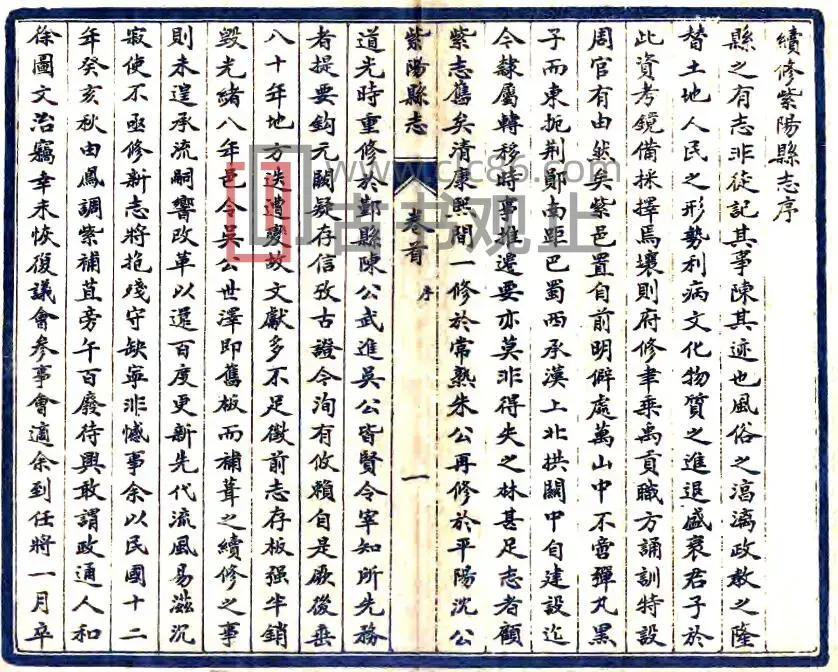 續修紫陽縣志序
縣之有志非徒記其事陳其迹也風俗之淳漓政教之隆
替土地人民之形勢利病文化物質之進退盛衰君子於
此資考鏡備採擇焉壤則府修聿乘禹貢職方誦訓特設
周官有由然矣紫邑置自前明僻處萬山中不啻彈丸黑
子而東扼荆鄖南距巴蜀西承漢上北拱關中自建設迄
令隸屬轉移時事推遷要亦莫非得失之林甚足志者顧
紫志舊矣清康熙間一修於常熟朱公再修於平陽沈公
紫陽縣志
卷首
序
一
道光時重修於鄞縣陳公武進吳公皆賢令宰知所先務
者提要鈎元闕疑存信攷古證今洵有攸賴自是厥後垂
八十年地方迭遭變故文獻多不足徵前志存板强半銷
毀光緒八年邑令吳公世澤即舊板而補葺之續修之事
則未遑承流嗣響改革以還百度更新先代流風易滋沉
寂使不亟修新志將抱殘守缺寧非憾事余以民國十二
年癸亥秋由鳳調紫補苴旁午百廢待興敢謂政通人和
徐圖文治竊幸未恢復議會參事會適余到任將一月卒
www.clc86.com
古书观止